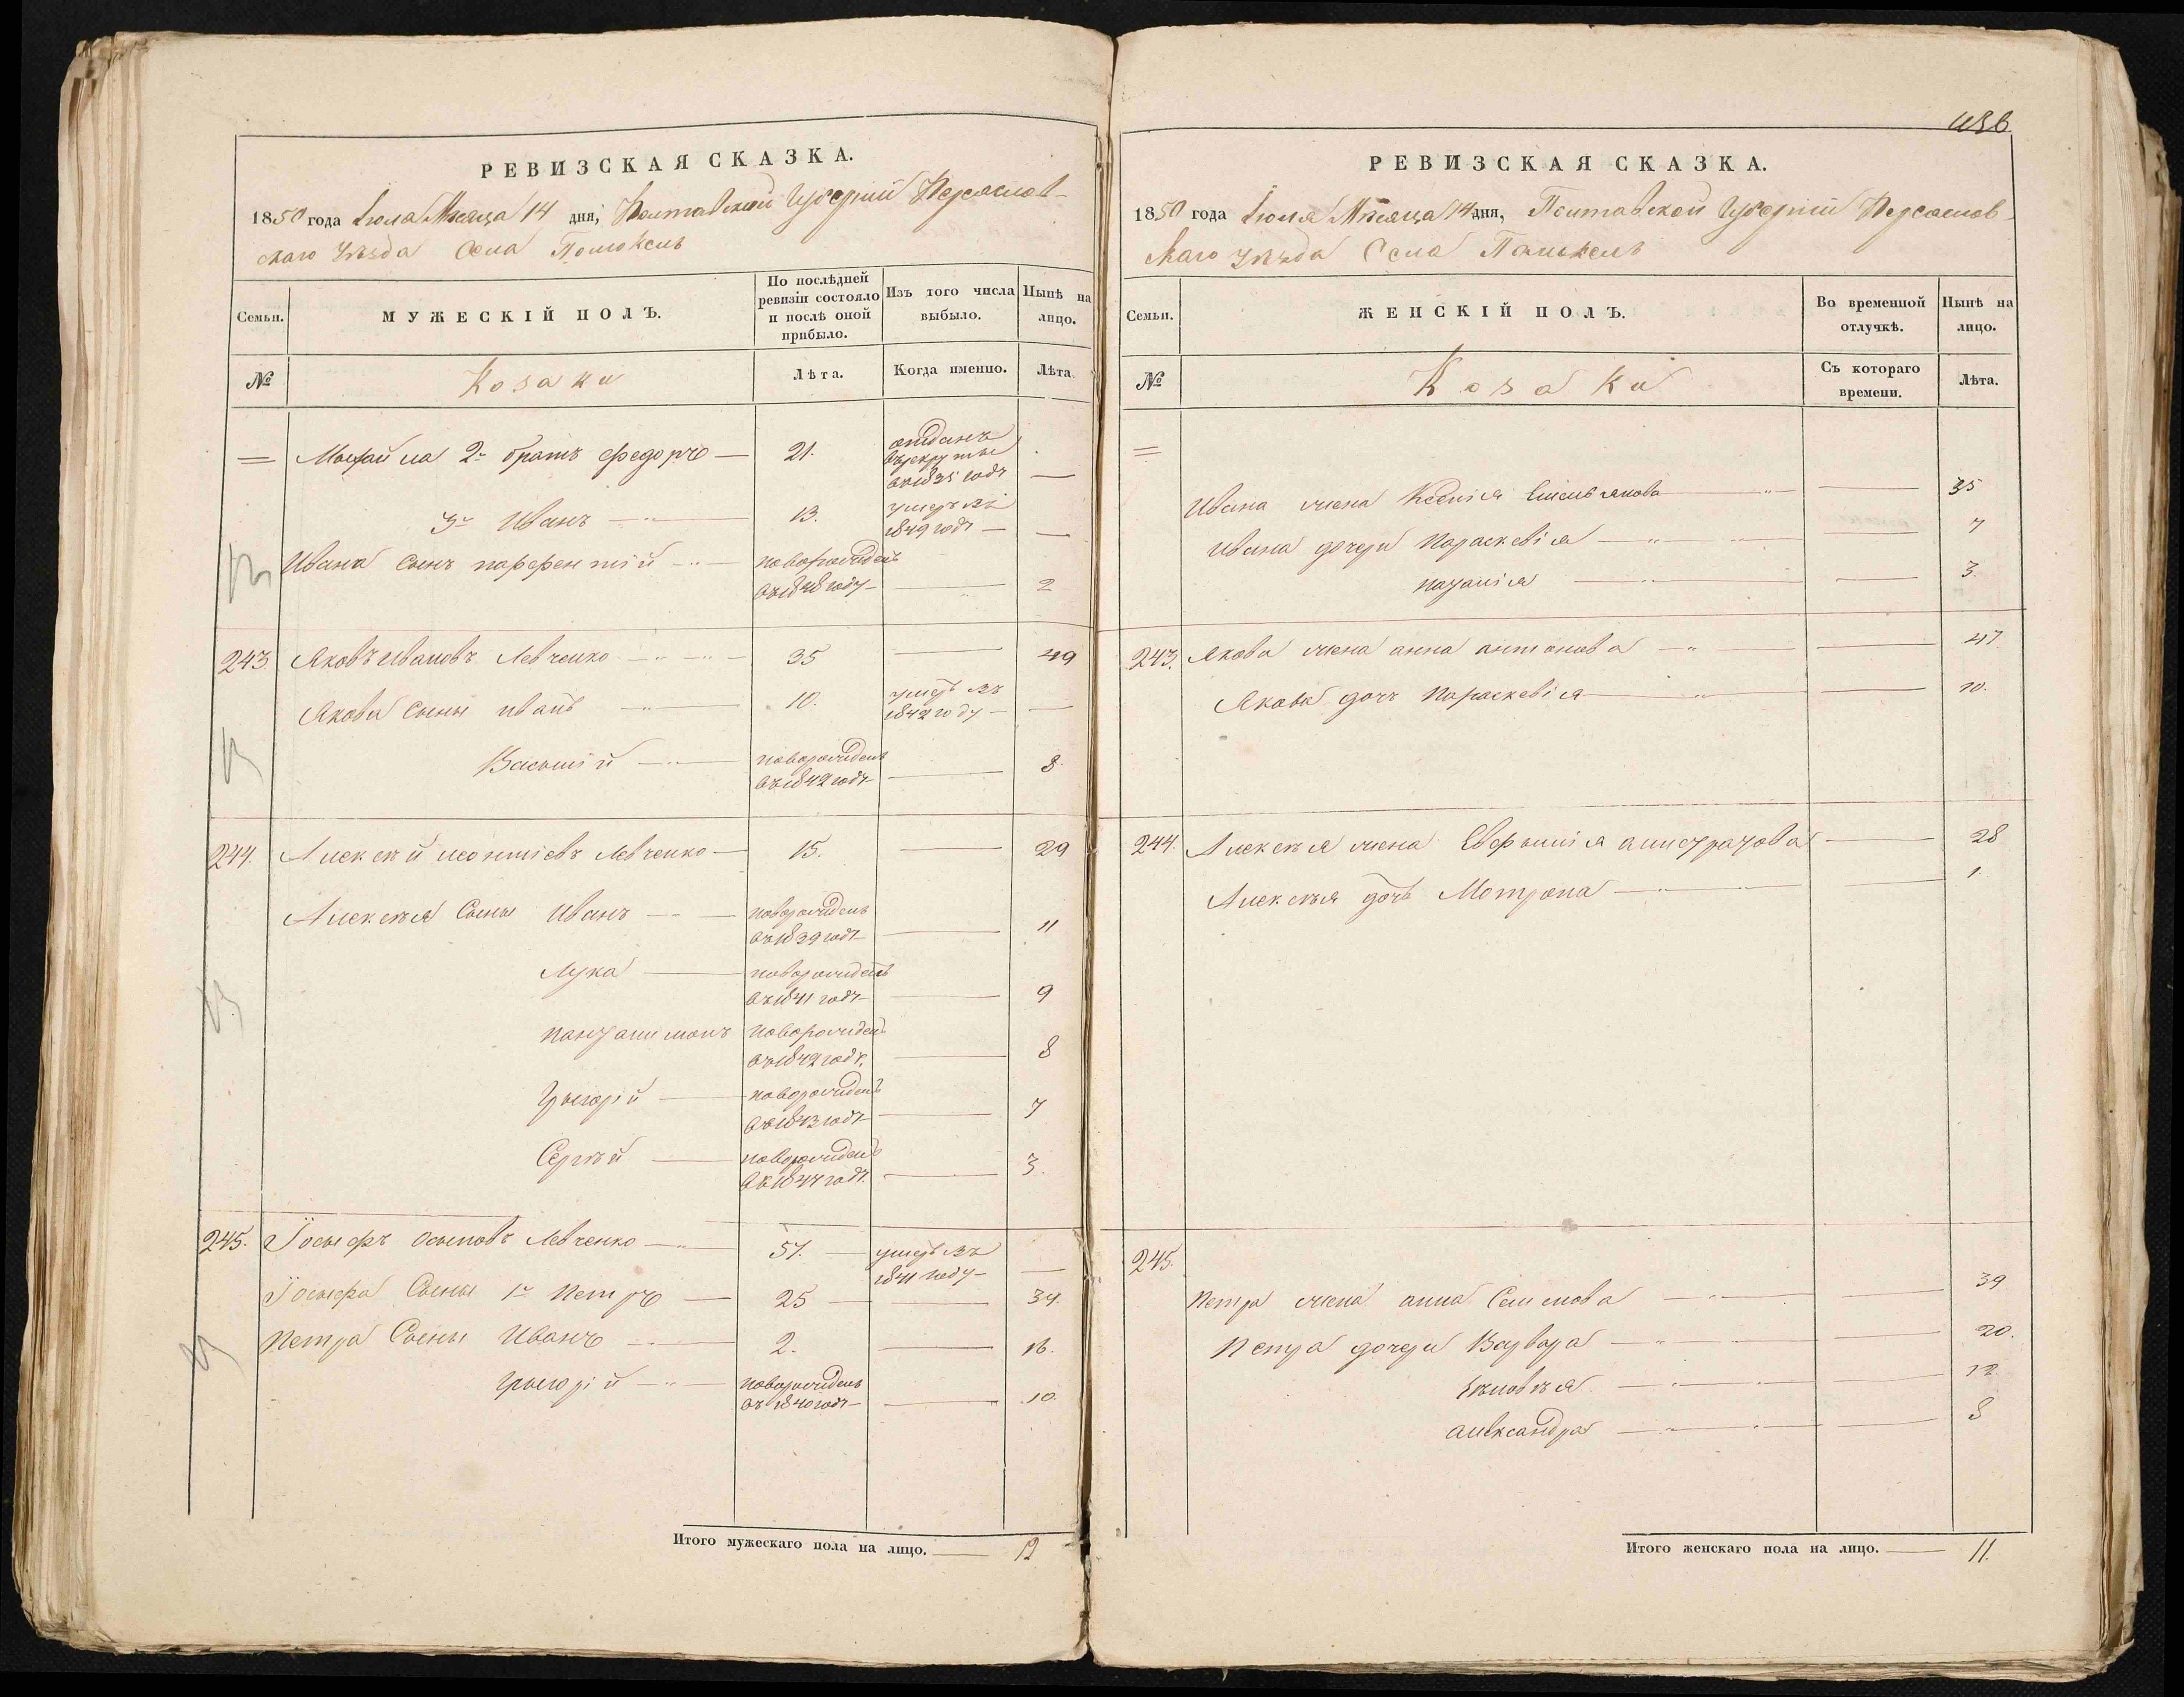 РЕВИЗСКАЯ СКАЗКА.
1850 года Іюля Мѣсяца 14 дня, Полтавской Губерніи Переяслов-
скаго Уѣзда Села Помоклей
Семьи. МУЖЕСКІЙ ПОЛЪ. По послѣдней ревизіи состояло и послѣ оной прибыло. Изъ того числа выбыло. Нынѣ на лицо.
№ Козаки Лѣта. Когда именно. Лѣта.
= Михайла 2й братъ Федоръ — 21. отданъ въ рекруты въ 1835 годѣ —
3й Иванъ — 13. умеръ въ 1849 годѣ — —
Ивана сынъ Парфентій — новорожденъ въ 1848 году — — 2
243 Яковъ Ивановъ Левченко — 35 — 49
Якова сыны Иванъ — 10. умеръ въ 1842 году — —
Василій — новорожденъ въ 1842 годѣ — 8
244. Алексѣй Леонтіевъ Левченко — 15. — 29
Алексѣя сыны Иванъ — новорожденъ въ 1839 годѣ — 11
Лука — новорожденъ въ 1841 годѣ — 9
Пантелимонъ новорожденъ въ 1842 годѣ. — 8
Григорій — новорожденъ въ 1843 годѣ — 7
Сергѣй — новорожденъ въ 1847 годѣ. — 3.
245. Іосифъ Осиповъ Левченко — 57. — умеръ въ 1841 году — —
Іосифа сыны 1й Петръ — 25 — — 39.
Петра сыны Иванъ — 2. — 16.
Григорій — новорожденъ въ 1840 годѣ — — 10.
Итого мужескаго пола на лицо. — 12
436.
РЕВИЗСКАЯ СКАЗКА.
1850 года Іюля Мѣсяца 14 дня, Полтавской Губерніи Переяслов
скаго Уѣзда Села Помоклей
Семьи. ЖЕНСКІЙ ПОЛЪ. Во временной отлучкѣ. Нынѣ на лицо.
№ Козаки Съ котораго времени. Лѣта.
=
Ивана жена Ксенія Емельянова — — 35
Ивана дочери Параскевія — — 7
— — 3.
243. Якова жена Анна Антонова — — 47.
Якова дочь Параскевія — — 10.
244. Алексѣя жена Евфимія — 28
Алексѣя дочь Мотрона — — 1
245.
Петра жена Анна Семенова — — 39
Петра дочери Варвара — — 20.
— — 12
Александра — — 8
Итого женскаго пола на лицо. — 11.